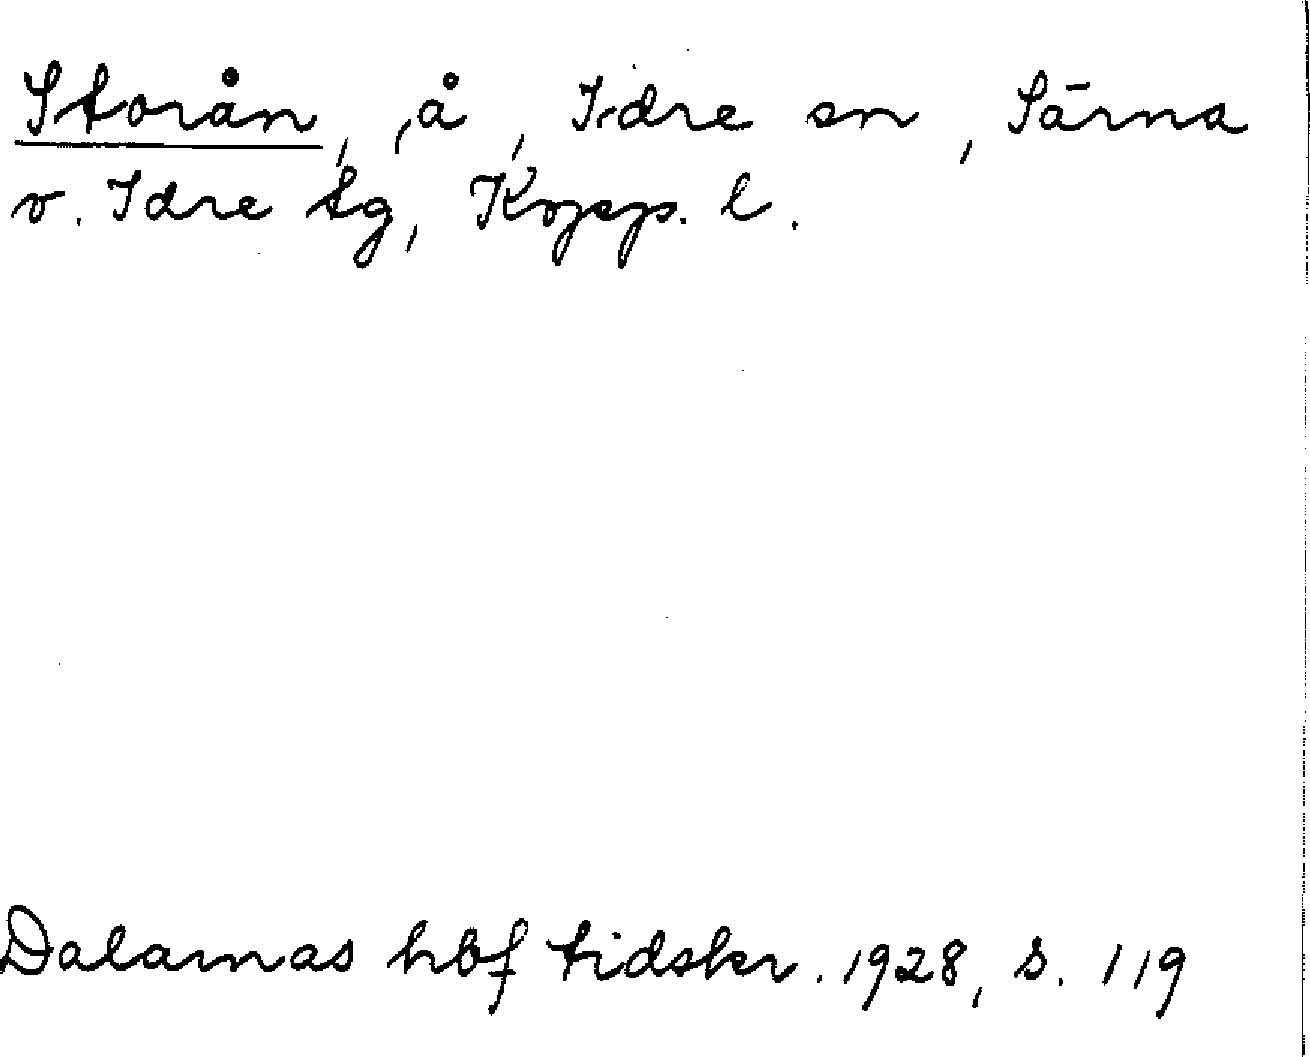 Storån, å, Idre sn, Särna
o. Idre tg, Kopp. l.
Dalarnas hbf tidskr. 1928, s. 119